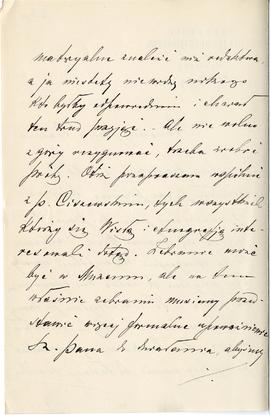 materyalne znaleść niż redaktora,
a ja niestety nie widzę nikogo
ktoby był odpowiednim i chciał
ten trud przyjąć.. Ale nie wolno
z góry rezygnować, trzeba zrobić
próbę. Otóż zapraszam wspólnie
z p. Ciszewskim, tych wszystkich
którzy się Wisłą i etnografią inte-
resowali dotąd. Zebranie może
być w Muzeum, ale na tem
właśnie zebraniu musimy przed-
stawić wszej formalne upoważnienie
Sz. Pana do działania, abyśmy